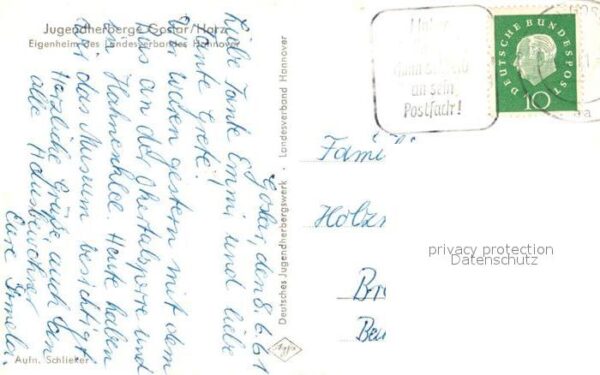 Jugendherberge Goslar/Harz
Eigenheim des Landesverbandes Hannover
Goslar, den 8.6.61
Liebe Tante Emmi und liebe
Tante Grete!
Wir waren gestern mit dem
Bus an der Okertalsperre und
Hahnenklee. Heute haben
wir das Museum besichtigt.
Herzliche Grüße auch an
alle Hausbewohner
Eure
Aufn. Schlieker
Deutsches Jugendherbergswerk · Landesverband Hannover
Agfa
an sein
Postfach!
DEUTSCHE BUNDESPOST
10
Fami
Holz
Br
privacy protection
Datenschutz